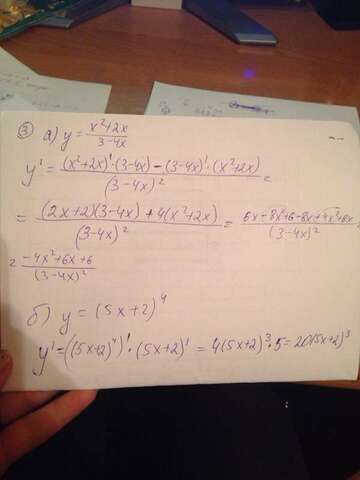 ③ а) y = (x²+2x)/(3-4x)
y' = ((x²+2x)'·(3-4x) - (3-4x)'·(x²+2x))/(3-4x)² =
= ((2x+2)(3-4x) + 4(x²+2x))/(3-4x)² = (6x-8x²+6-8x+4x²+8x)/(3-4x)² =
= (-4x²+6x+6)/(3-4x)²
б) y = (5x+2)⁴
y' = ((5x+2)⁴)'·(5x+2)' = 4(5x+2)³·5 = 20(5x+2)³